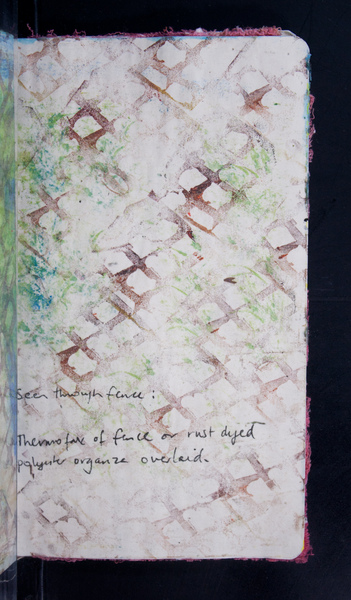 Seen through fence:
Thermofax of fence or rust dyed
polyester organza overlaid.